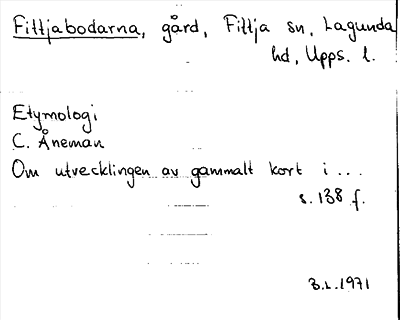 Fittjabodarna, gård, Fittja sn, Lagunda
hd, Upps. l.
Etymologi
C. Åneman
Om utvecklingen av gammalt kort i ...
s. 138 f.
1971